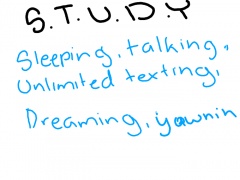 S.T.U.D.Y
Sleeping, talking,
Unlimited texting,
Dreaming, yawnin